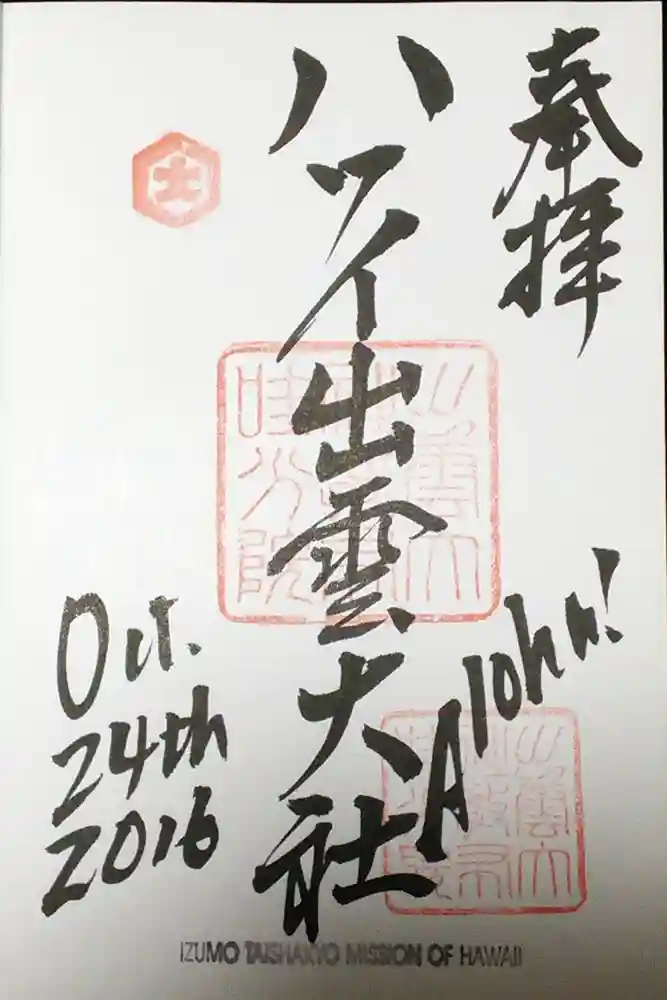 奉拝
ハワイ出雲大社
Aloha!
Oct.
24th
2016
IZUMO TAISHAKYO MISSION OF HAWAII